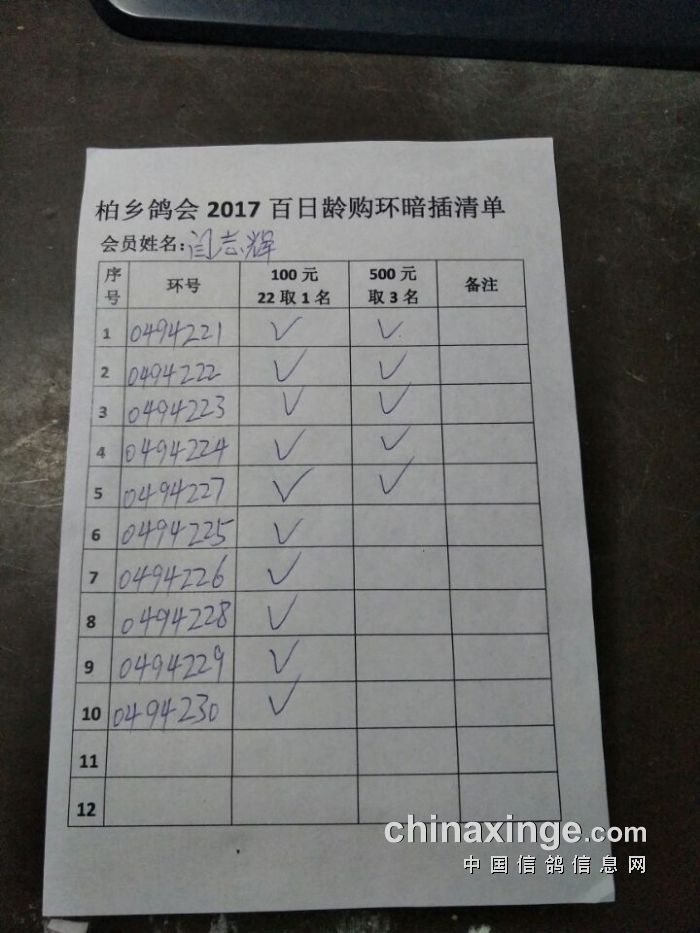 柏乡鸽会2017百日龄购环暗插清单
会员姓名:闫志辉
序号 环号 100元 22取1名 500元 取3名 备注
1 0494221 ✓ ✓
2 0494222 ✓ ✓
3 0494223 ✓ ✓
4 0494224 ✓ ✓
5 0494227 ✓ ✓
6 0494225 ✓
7 0494226 ✓
8 0494228 ✓
9 0494229 ✓
10 0494230 ✓
11
12
chinaxinge.com
中国信鸽信息网